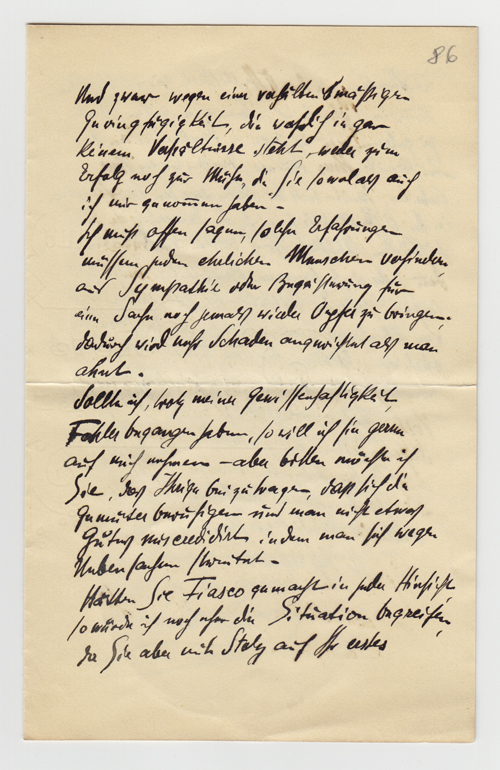 86
Und zwar wegen einer verhältnismäßigen
Geringfügigkeit, die wahrlich in gar
keinem Verhältnisse steht, weder zum
Erfolg noch zur Mühe, die Sie sowohl als auch
ich mir genommen haben –
Ich muß offen sagen, solche Erfahrungen
müssen jeden ehrlichen Menschen verhindern
aus Sympathie oder Begeisterung für
eine Sache noch jemals wieder Opfer zu bringen,
dadurch wird mehr Schaden angerichtet als man
ahnt.
Sollte ich, trotz meiner Gewissenhaftigkeit,
Fehler begangen haben, so will ich sie gerne
auf mich nehmen – aber bitten möchte ich
Sie, das Ihrige beizutragen, dass sich die
Gemüter beruhigen und man nicht etwas
Gutes miscreditirt indem man sich wegen
Nebensachen streitet –
Hätten Sie Fiasco gemacht in jeder Hinsicht
so würde ich noch eher die Situation begreifen,
da Sie aber mit Stolz auf Ihr erstes